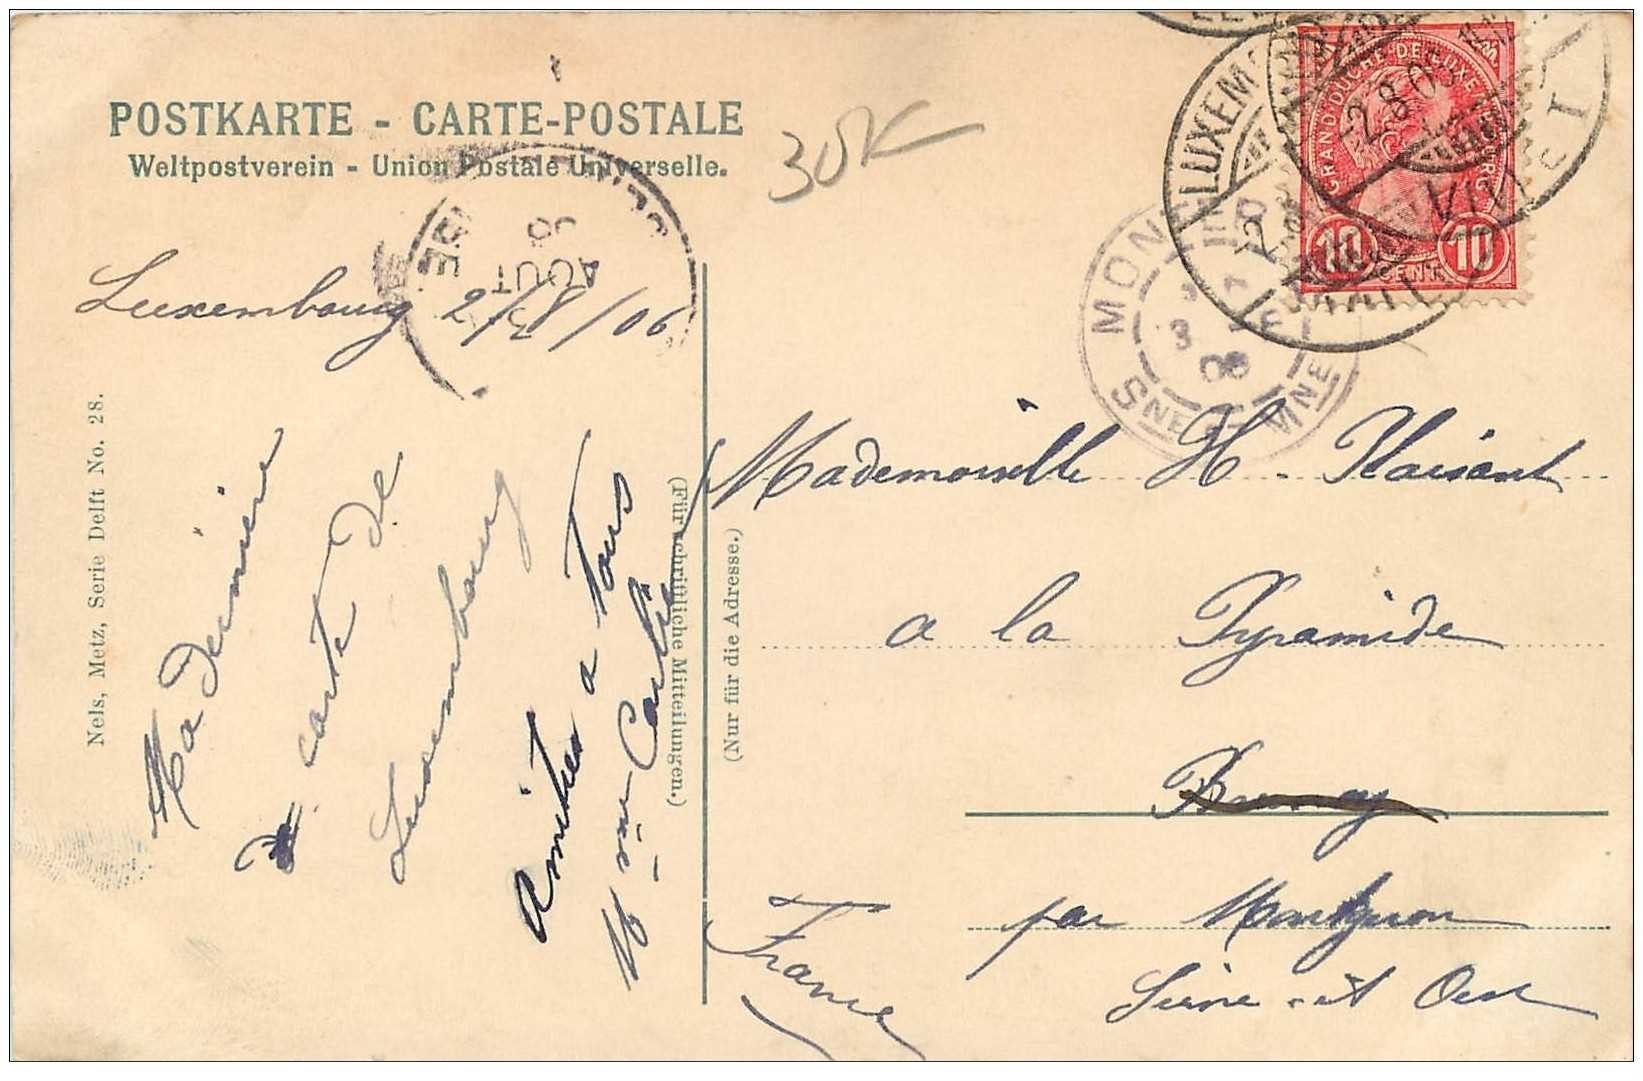 POSTKARTE - CARTE-POSTALE
Weltpostverein - Union Postale Universelle.
30K
Luxembourg 2/8/06
Ma dernière
carte de
Luxembourg
Amitiés a tous
Mme
Nels, Metz, Serie Delft No. 28.
(Für schriftliche Mitteilungen.)
(Nur für die Adresse.)
GRAND DUCHÉ DE LUXEMBOURG
10 CENT. 10
LUXEMB
VILLE
2.8.06
MON
3
06
SNE ET MNE
AOUT
06
Mademoiselle H. Plaisant
a la Pyramide
Brunoy
par Montgeron
Seine-et-Oise
France